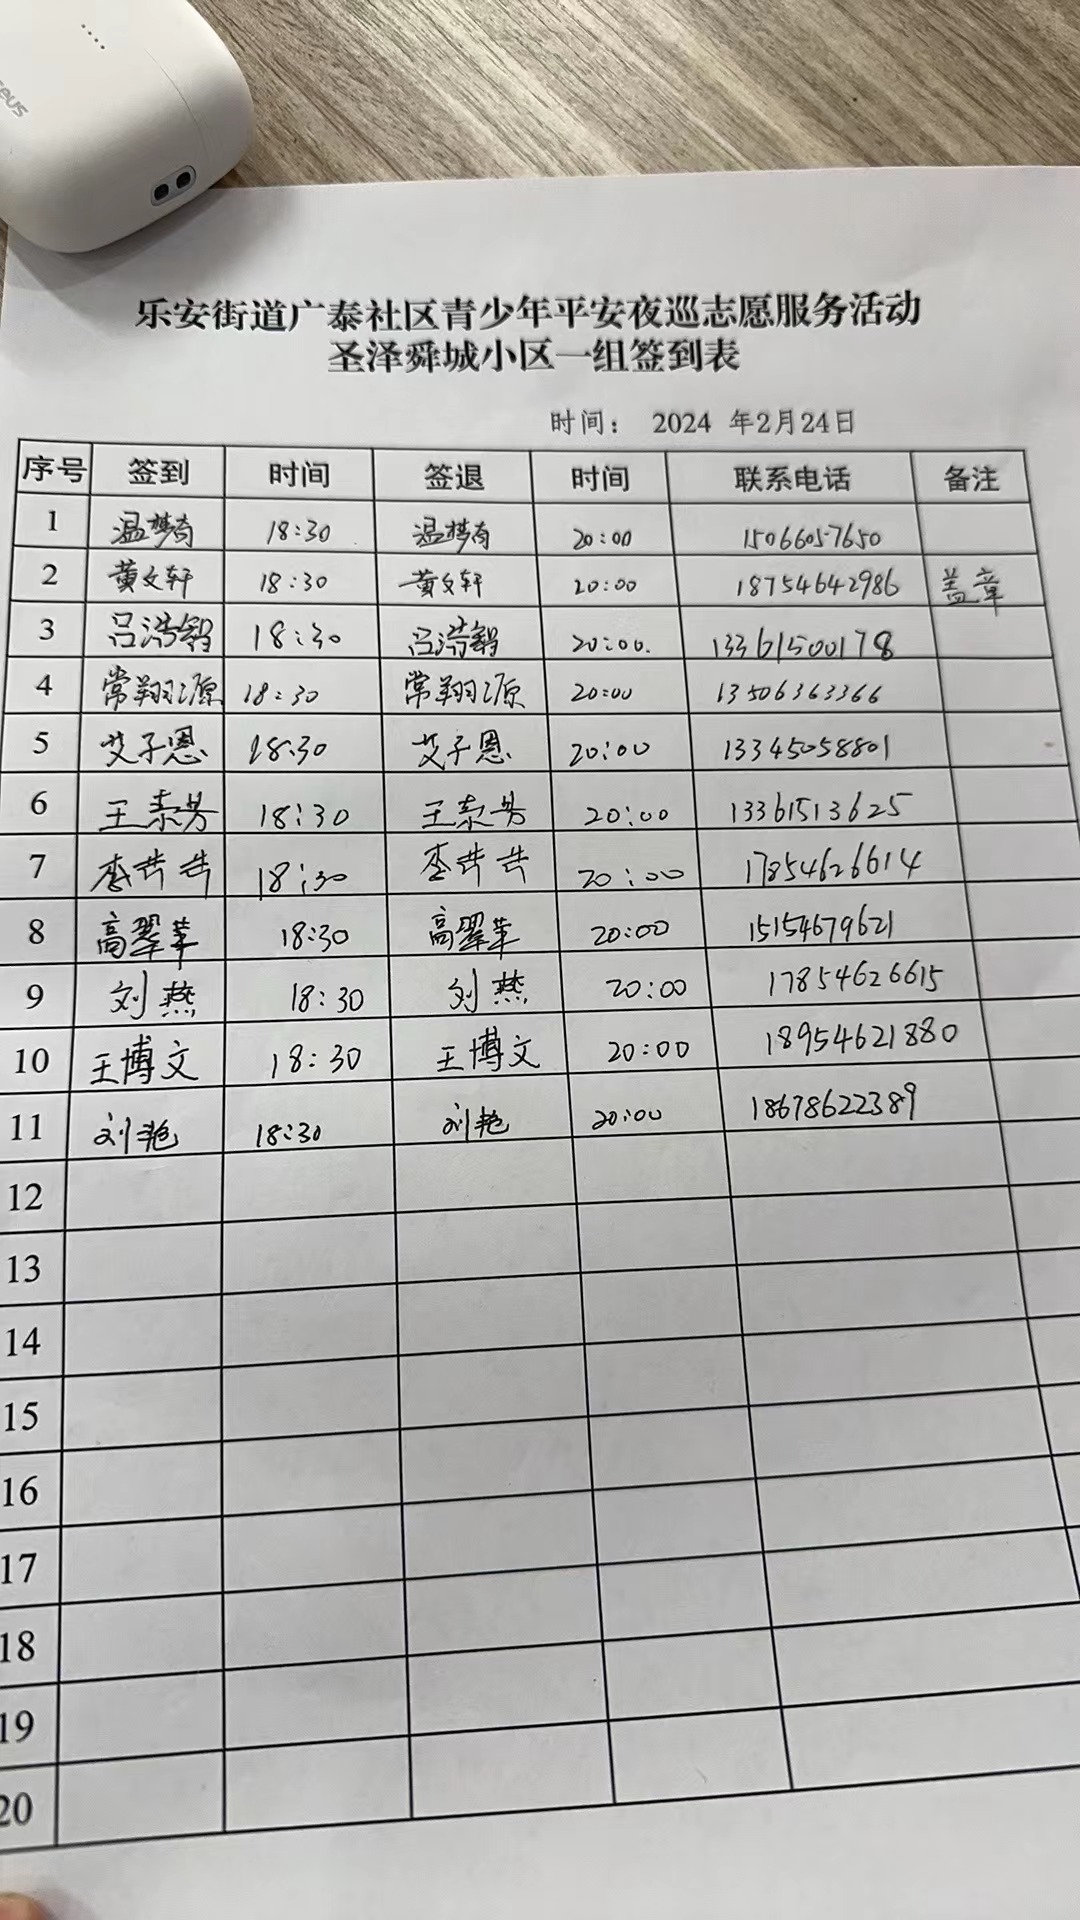 乐安街道广泰社区青少年平安夜巡志愿服务活动
圣泽舜城小区一组签到表
时间： 2024 年2月24日
序号 签到 时间 签退 时间 联系电话 备注
1 温梦奇 18:30 温梦奇 20:00 15066057650
2 黄文轩 18:30 黄文轩 20:00 18754642986 盖章
3 吕浩 18:30 吕浩 20:00. 13361500178
4 常翔源 18:30 常翔源 20:00 13506363366
5 艾子恩 18:30 艾子恩 20:00 13345058801
6 王泰 18:30 王泰 20:00 13361513625
7 李 18:30 李 20:00 17854626614
8 高翠苹 18:30 高翠苹 20:00 15154679621
9 刘燕 18:30 刘燕 20:00 17854626615
10 王博文 18:30 王博文 20:00 18954621880
11 刘艳 18:30 刘艳 20:00 18678622389
12
13
14
15
16
17
18
19
20